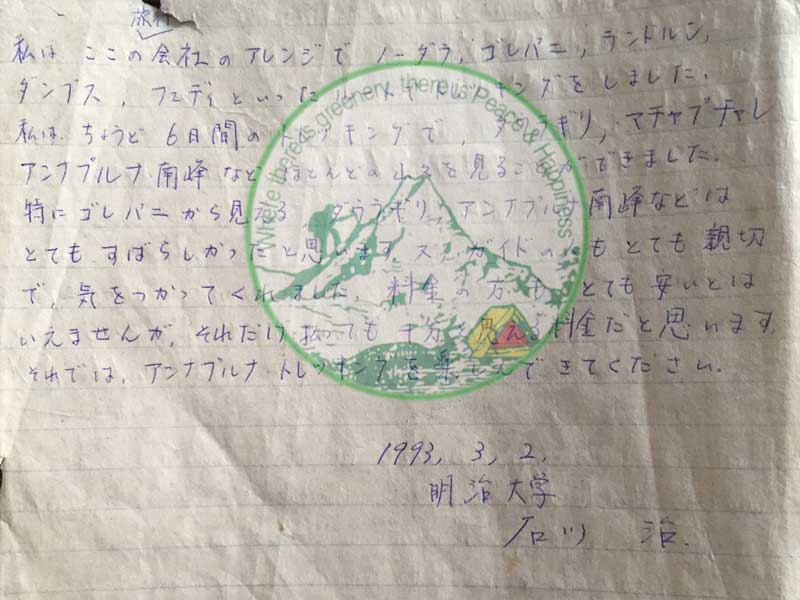 旅行
私は ここの会社のアレンジで ノーダラ, ゴレパニ, ランドルン,
ダンプス, フェディといった トレッキングをしました.
私は ちょうど 6日間の トレッキングで, ダウラギリ, マチャプチャレ
アンナプルナ 南峰 など ほとんどの山々を見ることができました.
特に ゴレパニ から 見える ダウラギリ, アンナプルナ南峰などは
とても すばらしかったと思います. ガイドの も とても 親切
で, 気をつかってくれました. 料金の方も とても 安いとは
いえませんが, それだけ 払っても 十分 見える料金だと思います.
それでは, アンナプルナ・トレッキングを楽しんできてください.
Where there is greenery, there is Peace & Happiness
1993, 3, 2,
明治大学
石川 治.